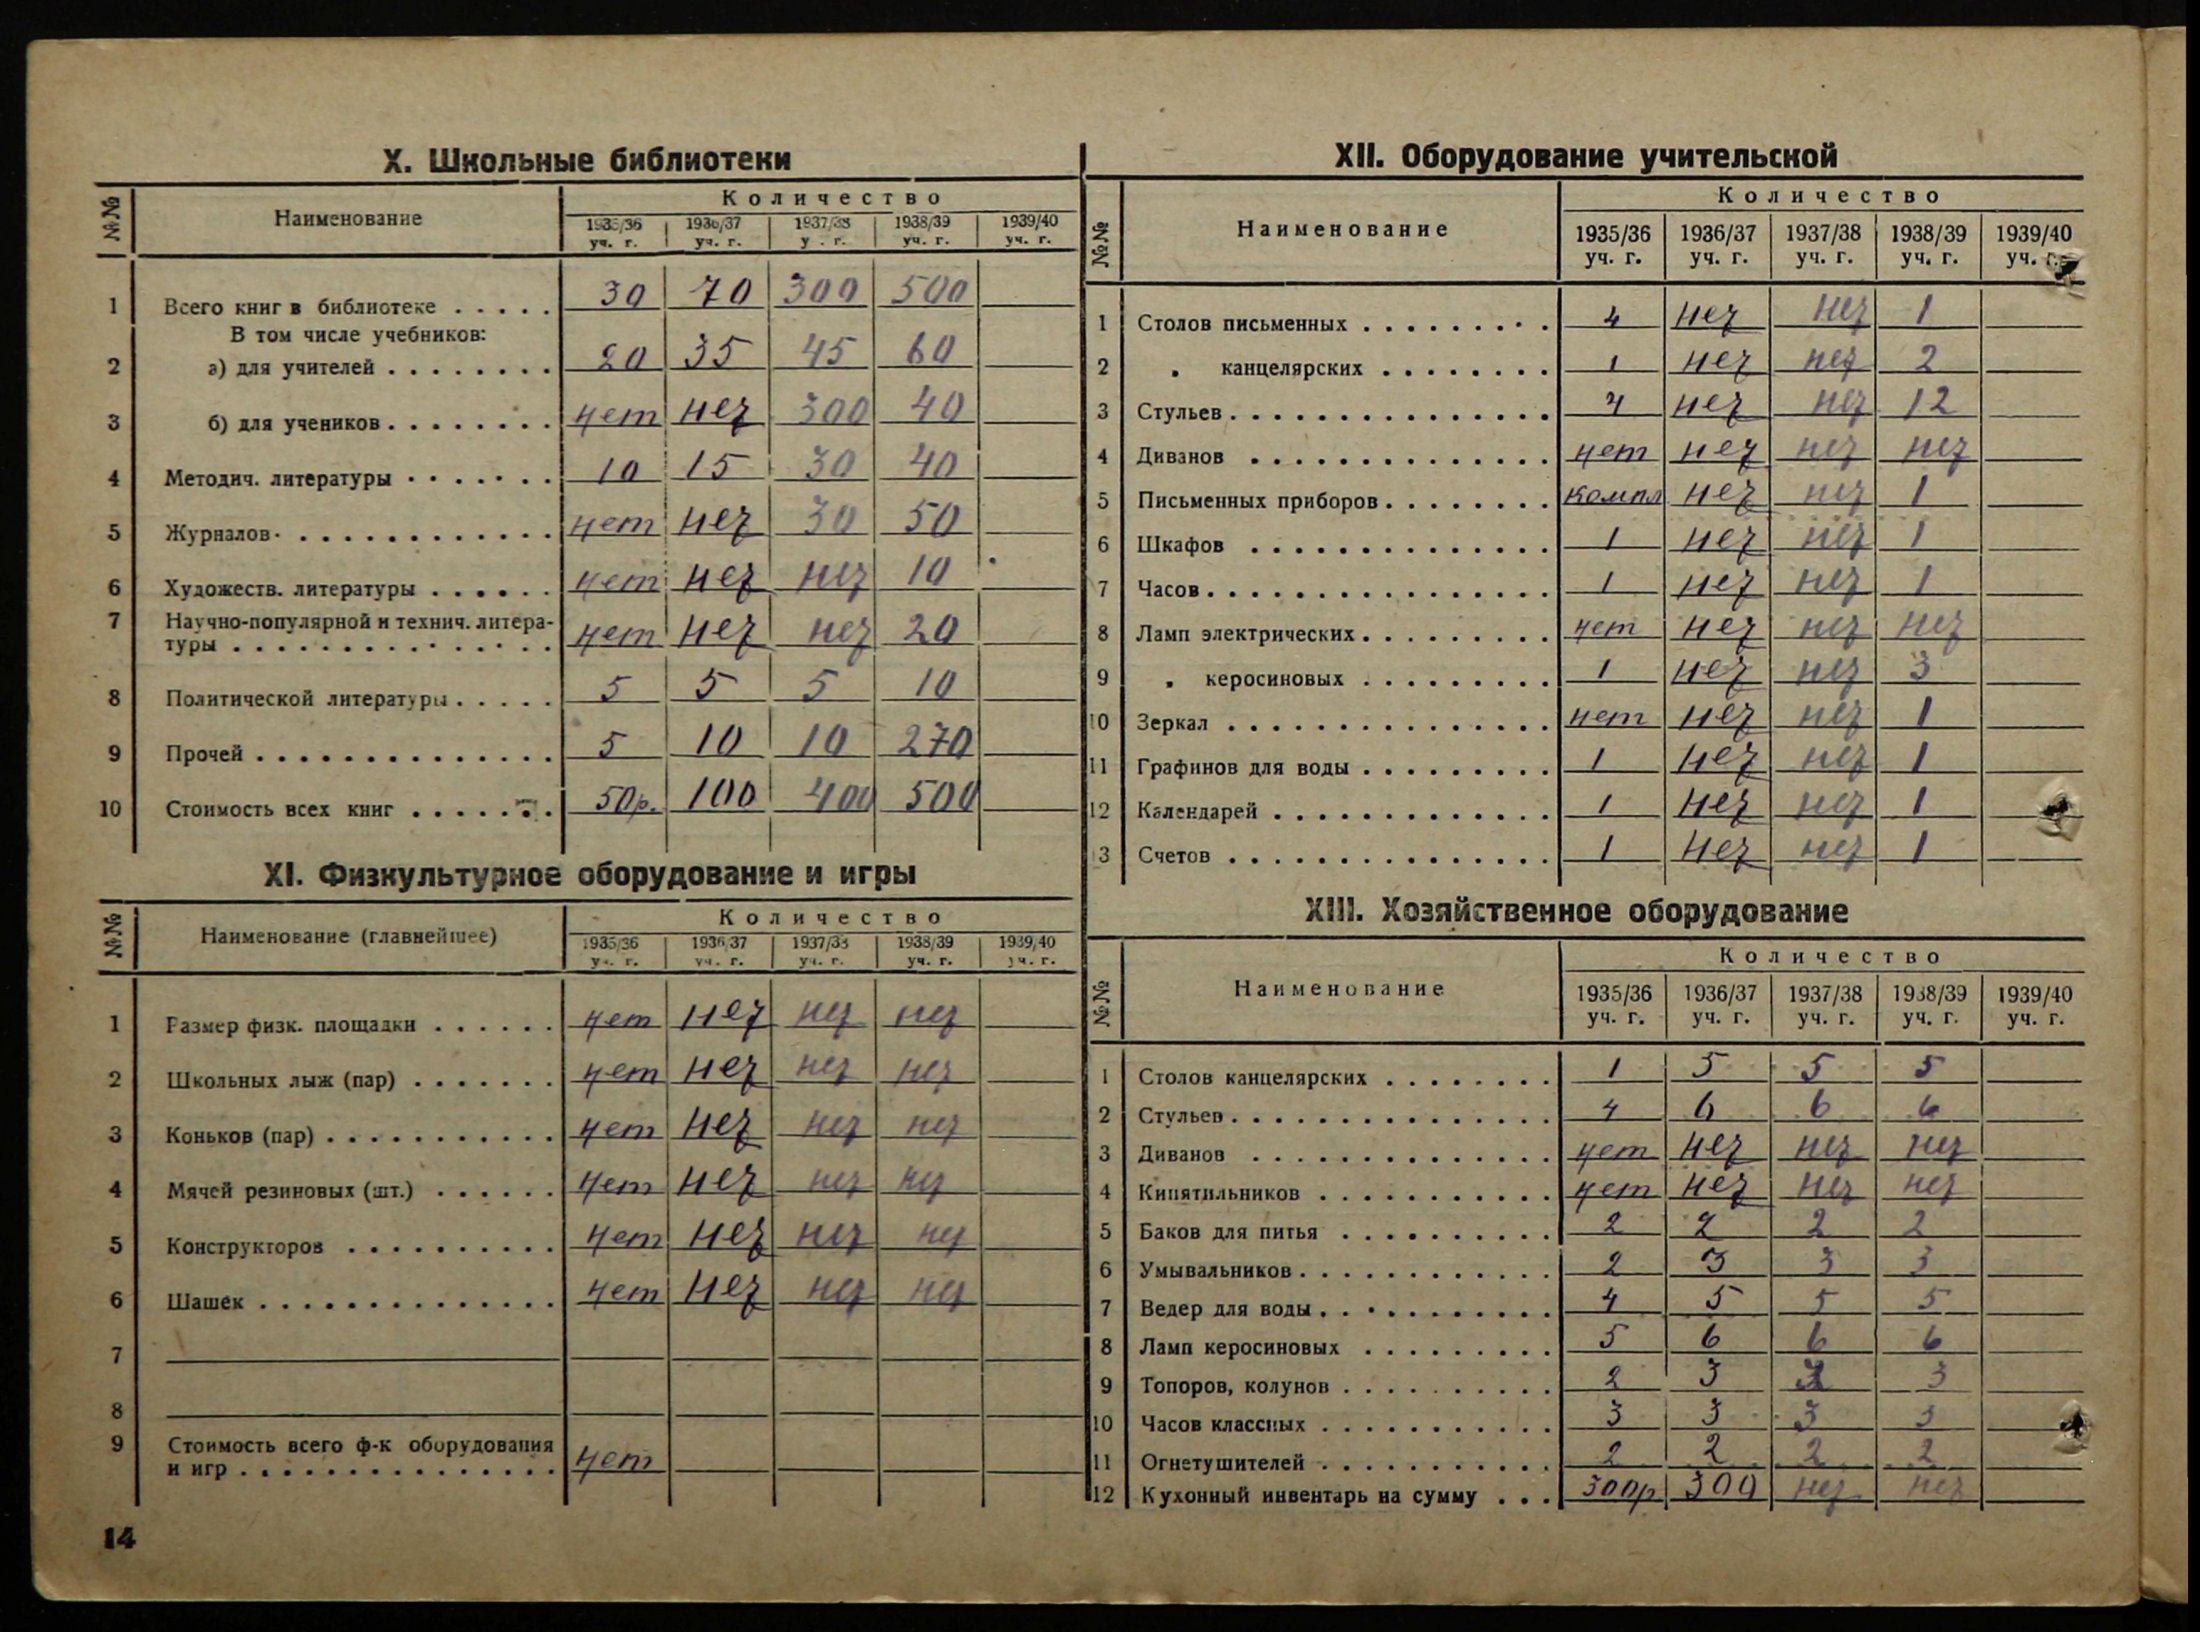 X. Школьные библиотеки
№№ Наименование Количество
1935/36 уч. г. 1936/37 уч. г. 1937/38 у . г. 1938/39 уч. г. 1939/40 уч. г.
1 Всего книг в библиотеке . . . . . 30 70 300 500
В том числе учебников:
2 а) для учителей . . . . . . . . 20 35 45 60
3 б) для учеников . . . . . . . . нет нет 300 40
4 Методич. литературы . . . . . . . 10 15 30 40
5 Журналов . . . . . . . . . . . . . нет нет 30 50
6 Художеств. литературы . . . . . . нет нет нет 10
7 Научно-популярной и технич. литера-
туры . . . . . . . . . . . . . . . нет нет нет 20
8 Политической литературы . . . . . 5 5 5 10
9 Прочей . . . . . . . . . . . . . . 5 10 10 270
10 Стоимость всех книг . . . . . . . 50р. 100 400 500
XI. Физкультурное оборудование и игры
№№ Наименование (главнейшее) Количество
1935/36 уч. г. 1936/37 уч. г. 1937/38 уч. г. 1938/39 уч. г. 1939/40 уч. г.
1 Размер физк. площадки . . . . . . нет нет нет нет
2 Школьных лыж (пар) . . . . . . . нет нет нет нет
3 Коньков (пар) . . . . . . . . . . . нет нет нет нет
4 Мячей резиновых (шт.) . . . . . . нет нет нет нет
5 Конструкторов . . . . . . . . . . нет нет нет нет
6 Шашек . . . . . . . . . . . . . . нет нет нет нет
7
8
9 Стоимость всего ф-к оборудования
и игр . . . . . . . . . . . . . . . нет
14
XII. Оборудование учительской
№№ Наименование Количество
1935/36 уч. г. 1936/37 уч. г. 1937/38 уч. г. 1938/39 уч. г. 1939/40 уч. г.
1 Столов письменных . . . . . . . . . 4 нет нет 1
2 „ канцелярских . . . . . . . . 1 нет нет 2
3 Стульев . . . . . . . . . . . . . . . 4 нет нет 12
4 Диванов . . . . . . . . . . . . . . нет нет нет нет
5 Письменных приборов . . . . . . . . компл нет нет 1
6 Шкафов . . . . . . . . . . . . . . 1 нет нет 1
7 Часов . . . . . . . . . . . . . . . . 1 нет нет 1
8 Ламп электрических . . . . . . . . . нет нет нет нет
9 „ керосиновых . . . . . . . . . 1 нет нет 3
10 Зеркал . . . . . . . . . . . . . . . нет нет нет 1
11 Графинов для воды . . . . . . . . . 1 нет нет 1
12 Календарей . . . . . . . . . . . . . 1 нет нет 1
13 Счетов . . . . . . . . . . . . . . . 1 нет нет 1
XIII. Хозяйственное оборудование
№№ Наименование Количество
1935/36 уч. г. 1936/37 уч. г. 1937/38 уч. г. 1938/39 уч. г. 1939/40 уч. г.
1 Столов канцелярских . . . . . . . . 1 5 5 5
2 Стульев . . . . . . . . . . . . . . . 4 6 6 6
3 Диванов . . . . . . . . . . . . . . нет нет нет нет
4 Кипятильников . . . . . . . . . . . нет нет нет нет
5 Баков для питья . . . . . . . . . . 2 2 2 2
6 Умывальников . . . . . . . . . . . . 2 3 3 3
7 Ведер для воды . . . . . . . . . . . 4 5 5 5
8 Ламп керосиновых . . . . . . . . . 5 6 6 6
9 Топоров, колунов . . . . . . . . . . 2 3 3 3
10 Часов классных . . . . . . . . . . . 3 3 3 3
11 Огнетушителей . . . . . . . . . . . 2 2 2 2
12 Кухонный инвентарь на сумму . . . 300р 300 нет нет